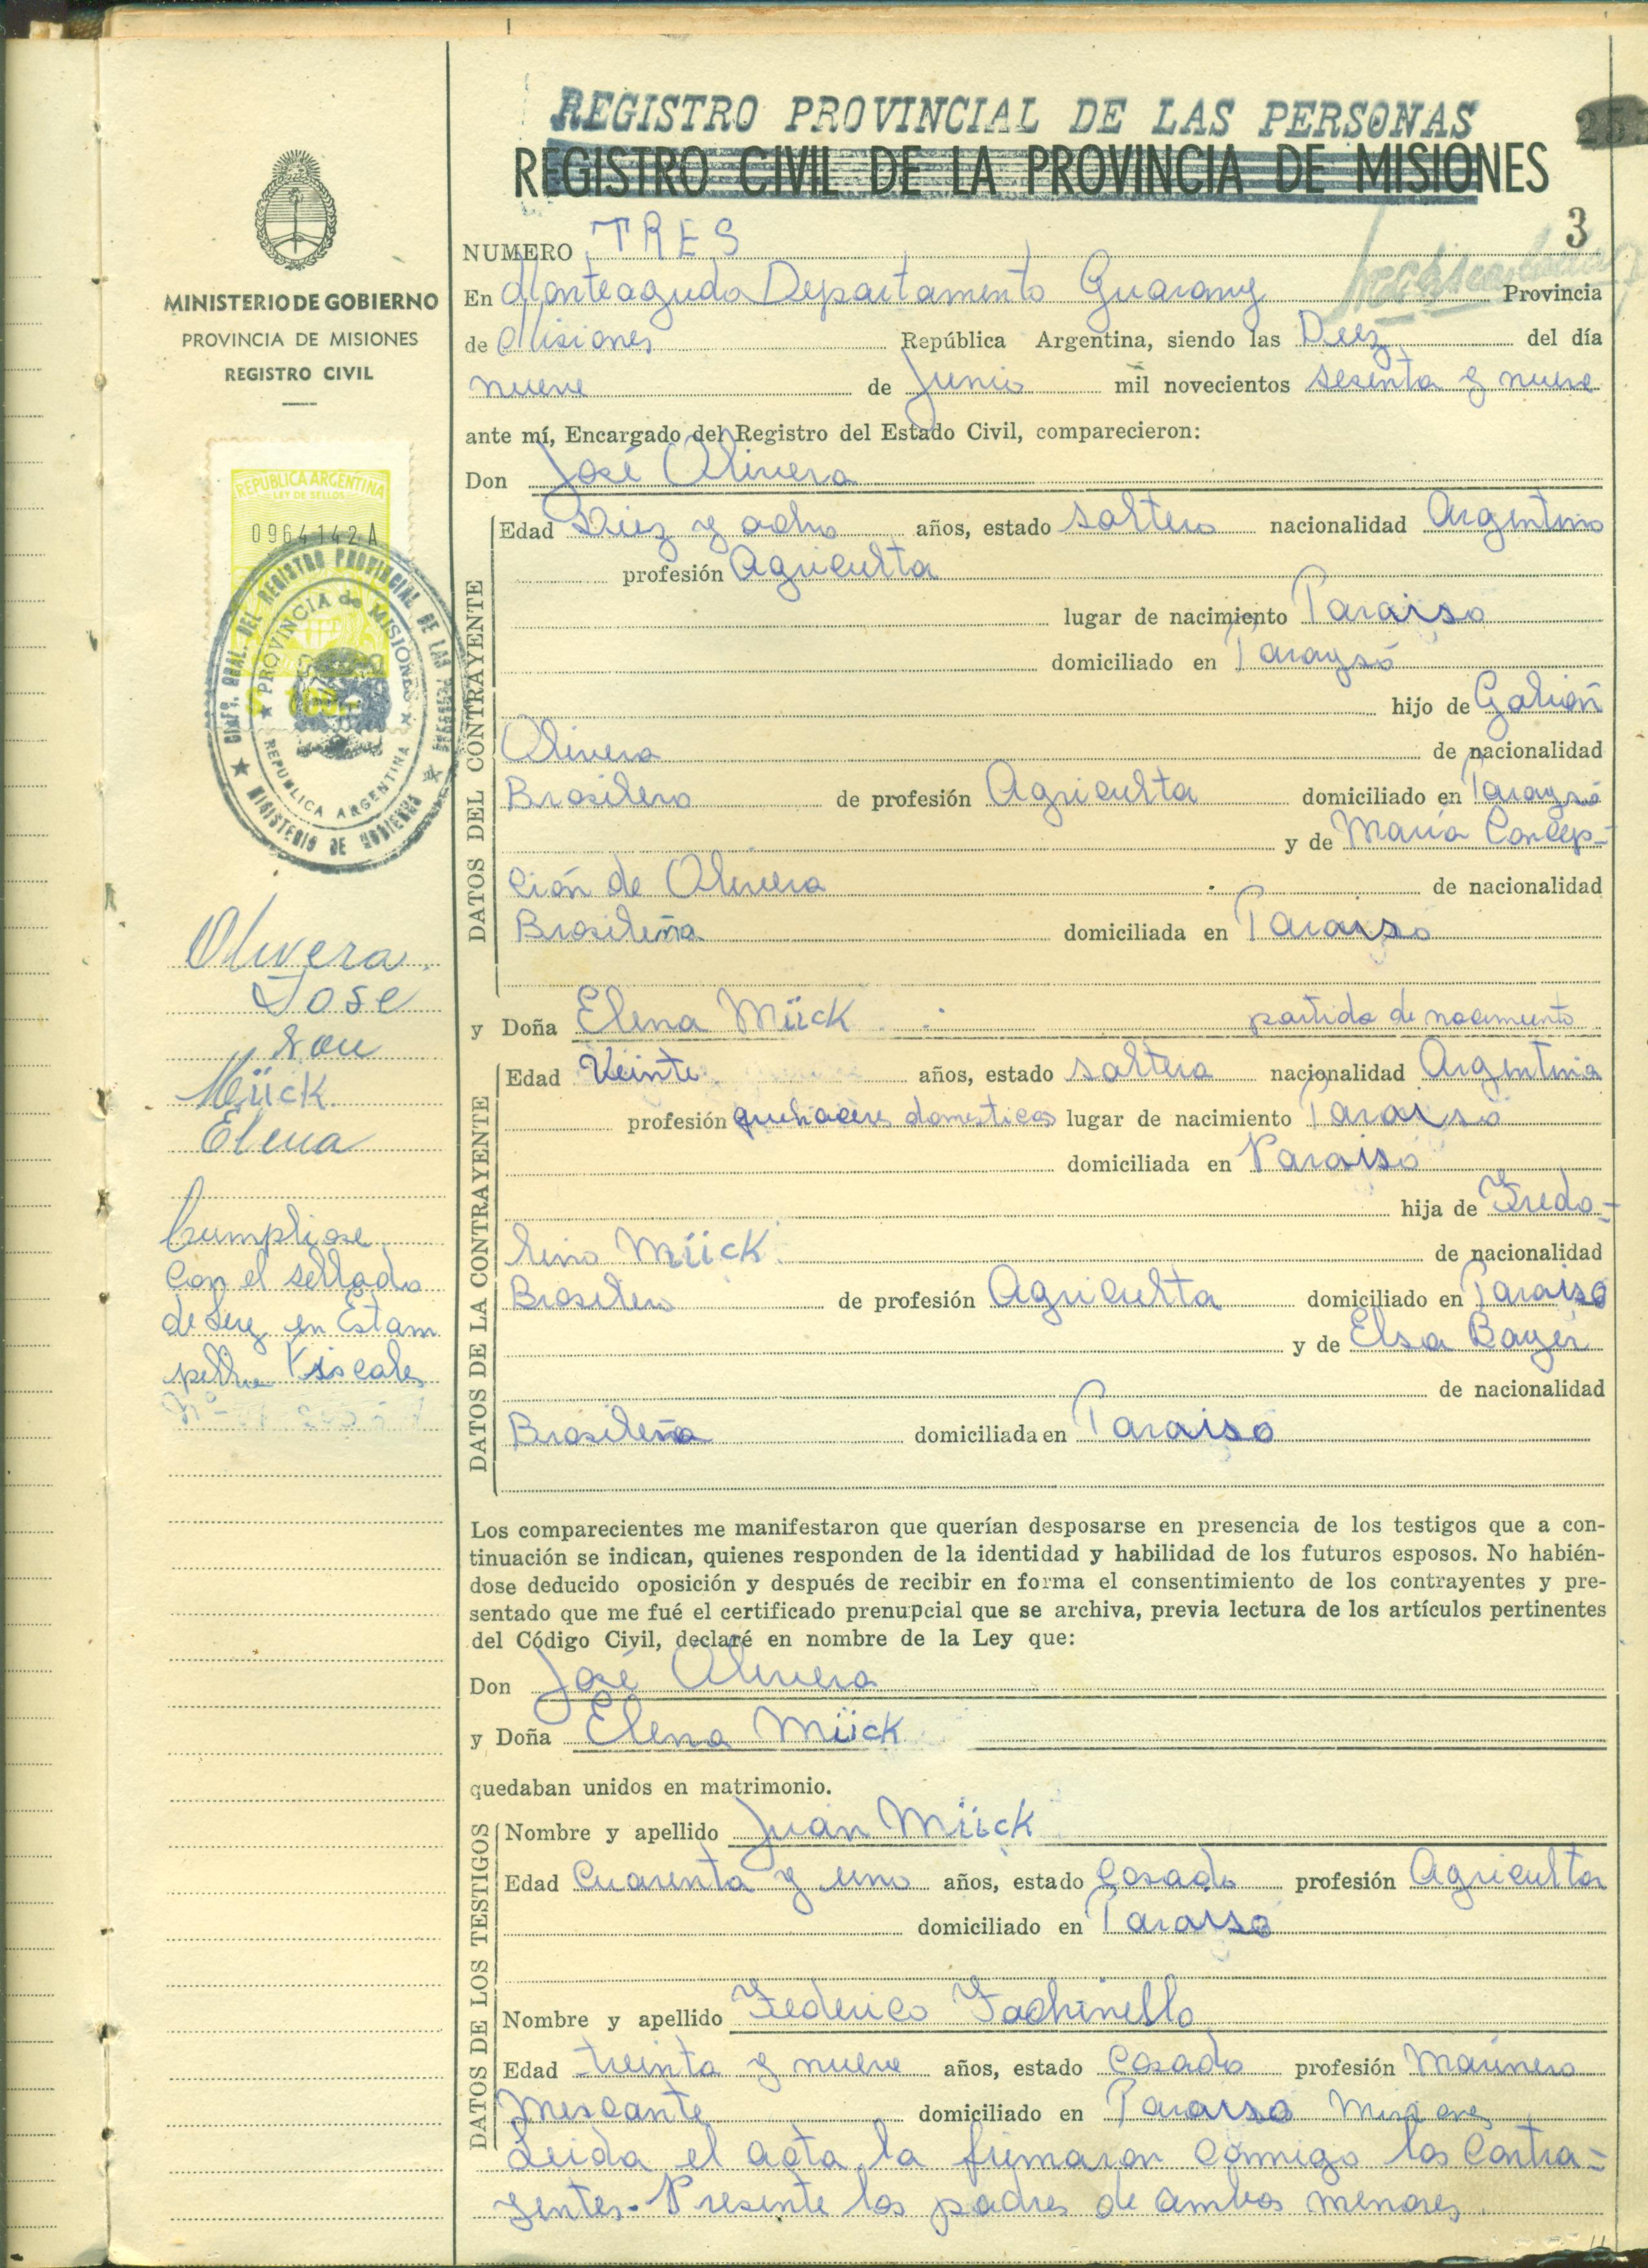 REGISTRO PROVINCIAL DE LAS PERSONAS
REGISTRO CIVIL DE LA PROVINCIA DE MISIONES
3
NUMERO TRES
En Monteagudo Departamento Guarany Provincia
de Misiones República Argentina, siendo las Diez del día
nueve de Junio mil novecientos sesenta y nueve
ante mí, Encargado del Registro del Estado Civil, comparecieron:
Don José Olivera
DATOS DEL CONTRAYENTE
Edad Diez y ocho años, estado soltero nacionalidad Argentino
profesión Agriculta
lugar de nacimiento Paraiso
domiciliado en Parayso
hijo de
Olivera de nacionalidad
Brasilero de profesión Agriculta domiciliado en Parayso
y de María Concep-
ción de Olivera de nacionalidad
Brasileña domiciliada en Paraiso
y Doña Elena Mück partida de nacimiento
DATOS DE LA CONTRAYENTE
Edad Veinte años, estado soltera nacionalidad Argentina
profesión quehaceres domesticos lugar de nacimiento Paraiso
domiciliada en Paraiso
hija de Fredo-
lino Mück de nacionalidad
Brasilero de profesión Agriculta domiciliado en Paraiso
y de Elsa Bayer
de nacionalidad
Brasileña domiciliada en Paraiso
Los comparecientes me manifestaron que querían desposarse en presencia de los testigos que a con-
tinuación se indican, quienes responden de la identidad y habilidad de los futuros esposos. No habién-
dose deducido oposición y después de recibir en forma el consentimiento de los contrayentes y pre-
sentado que me fué el certificado prenupcial que se archiva, previa lectura de los artículos pertinentes
del Código Civil, declaré en nombre de la Ley que:
Don José Olivera
y Doña Elena Mück
quedaban unidos en matrimonio.
DATOS DE LOS TESTIGOS
Nombre y apellido Juan Mück
Edad Cuarenta y uno años, estado Casado profesión Agricultor
domiciliado en Paraiso
Nombre y apellido Federico Fachinello
Edad treinta y nueve años, estado Casado profesión Marinero
Mercante domiciliado en Paraiso Misiones
Leida el acta la firmaron conmigo los Contra-
yentes. Presente los padres de ambos menores.
MINISTERIO DE GOBIERNO
PROVINCIA DE MISIONES
REGISTRO CIVIL
REPUBLICA ARGENTINA
LEY DE SELLOS
0964142A
DIREC. GRAL. DEL REGISTRO PROVINCIAL DE LAS PERSONAS
PROVINCIA de MISIONES
REPUBLICA ARGENTINA
MINISTERIO DE GOBIERNO
Olivera
Jose
con
Mück
Elena
Cumpliose
con el sellado
de Ley en Estam
pilla Fiscales